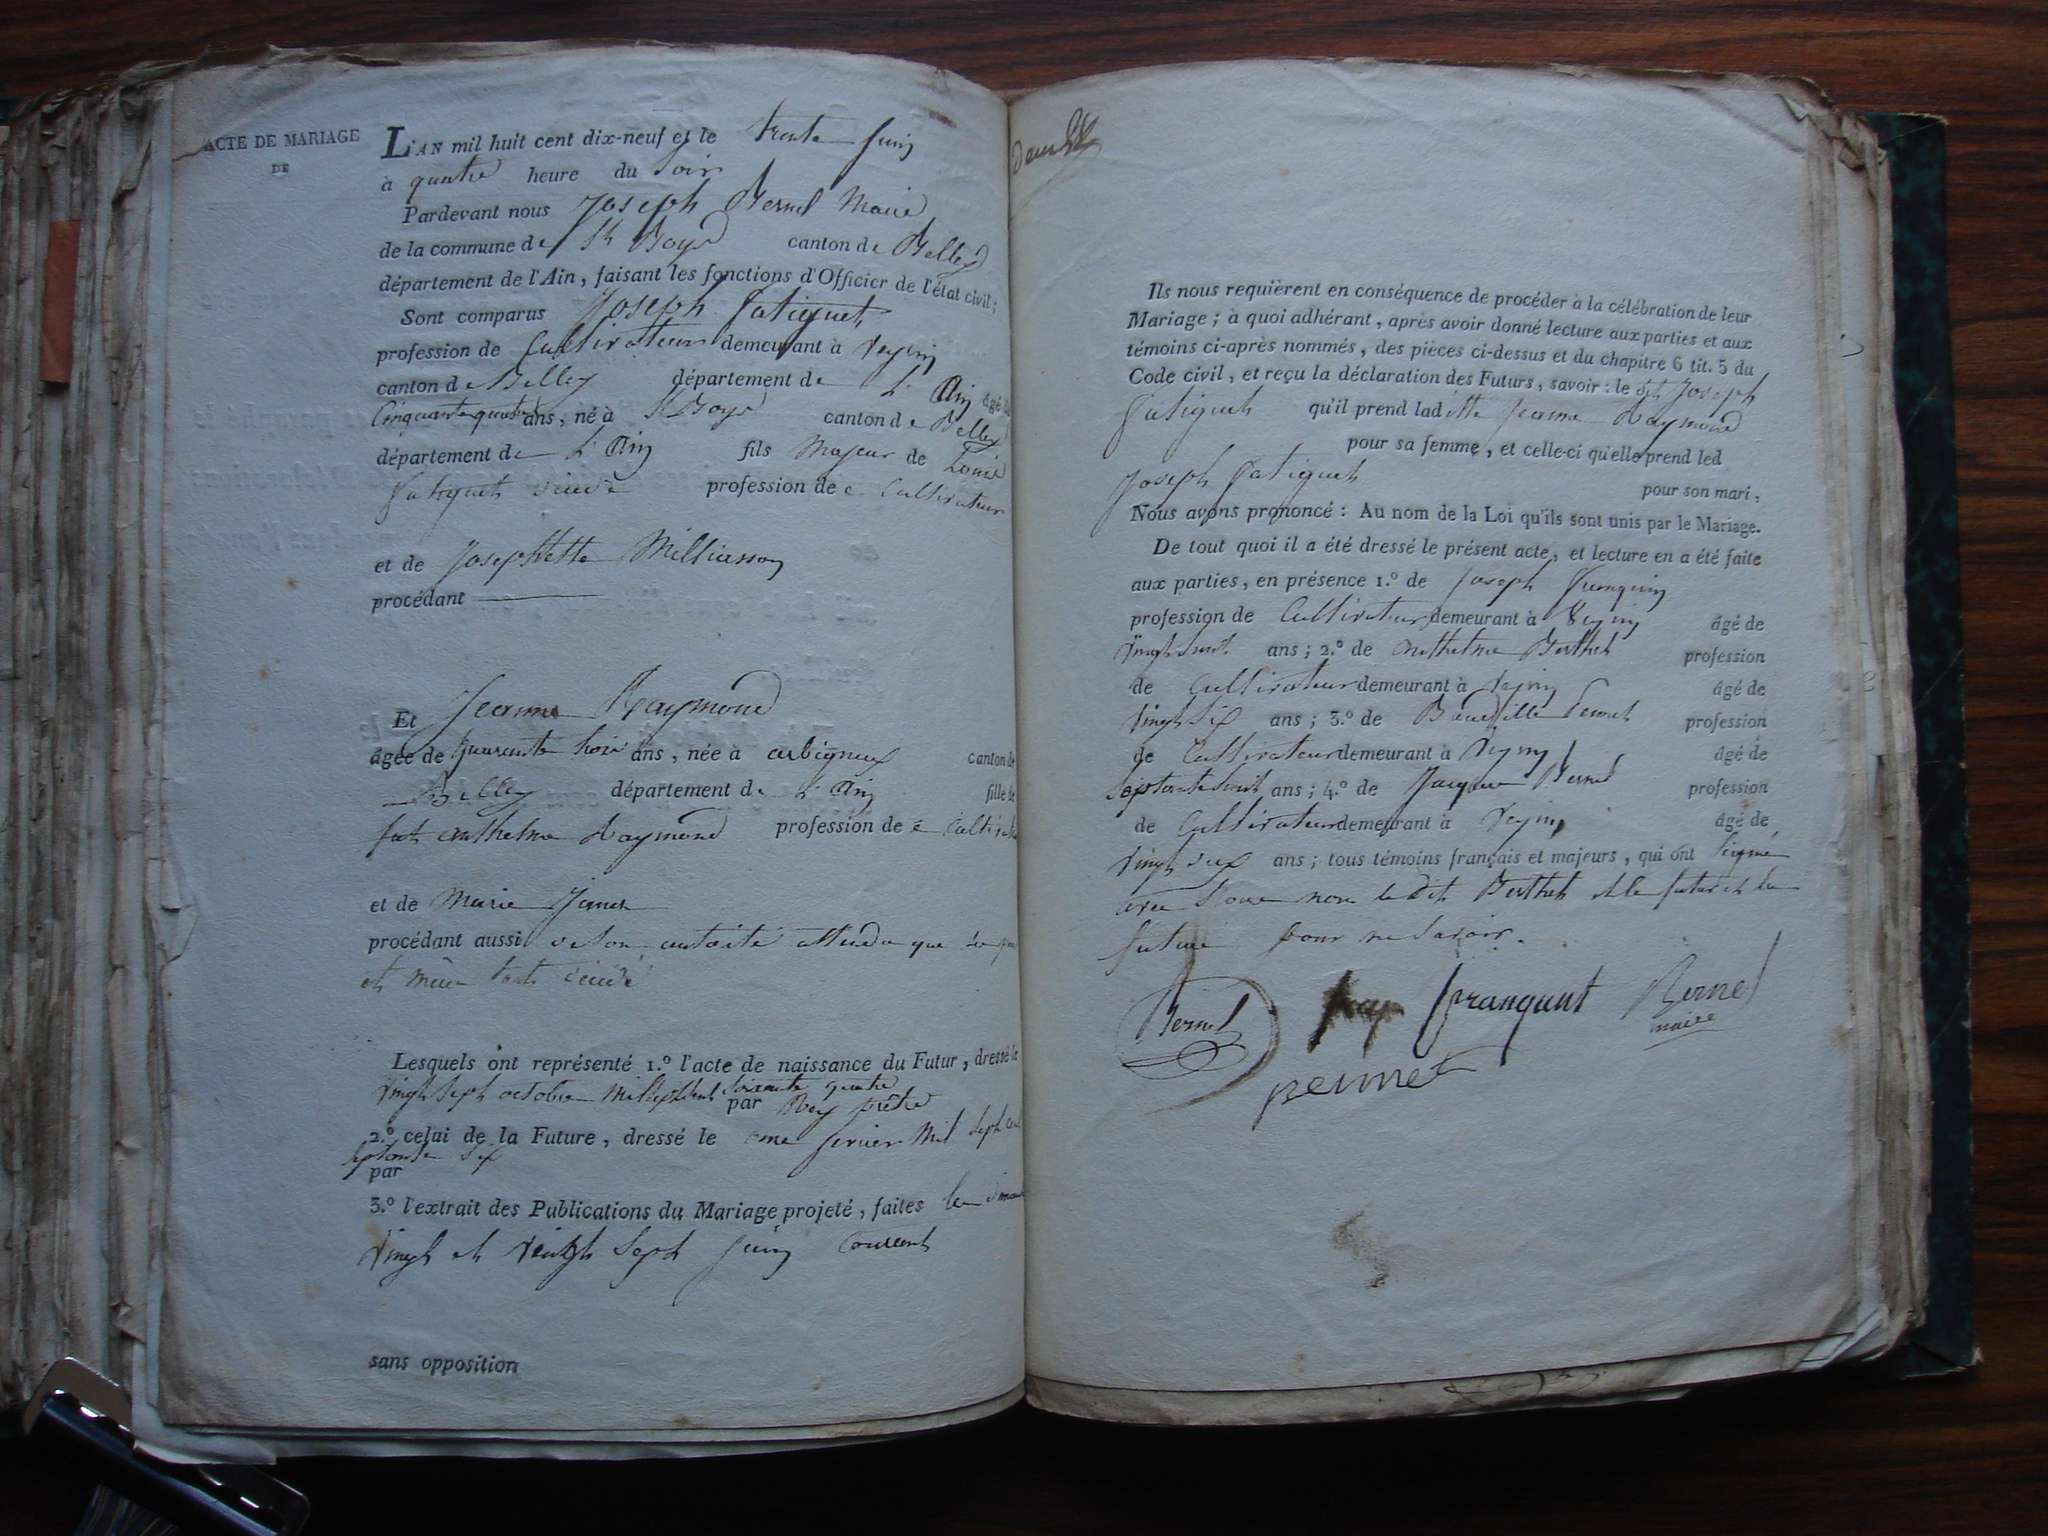 ACTE DE MARIAGE
DE
L'AN mil huit cent dix-neuf et le trente juin
à quatre heure du soir
Pardevant nous Joseph Bernel Maire
de la commune de St Boys canton de Belley
département de l'Ain, faisant les fonctions d'Officier de l'état civil;
Sont comparus Joseph Fatiguet
profession de Cultivateur demeurant à veyrin
canton de Belley département de L'Ain âgé de
Cinquante quatre ans, né à St Boys canton de Belley
département de L'Ain fils Majeur de Louis
Fatiguet profession de Cultivateur
et de Josephette Milliasson
procédant
Et Jeanne Raymond
âgée de quarante trois ans, née à arbigneux canton de
Belley département de L'Ain fille de
feu anthelme Raymond profession de
et de Marie
procédant aussi de son autorité attendu que
et
Lesquels ont représenté 1.º l'acte de naissance du Futur, dressé le
vingt sept octobre mil sept cent soixante quatre
par Rey prêtre
2.º celui de la Future, dressé le février mil sept cent
septante six
par
3.º l'extrait des Publications du Mariage projeté, faites
vingt et vingt sept juin courant
sans opposition
Ils nous requièrent en conséquence de procéder à la célébration de leur
Mariage; à quoi adhérant, après avoir donné lecture aux parties et aux
témoins ci-après nommés, des pièces ci-dessus et du chapitre 6 tit. 5 du
Code civil, et reçu la déclaration des Futurs, savoir: le dit Joseph
Fatiguet qu'il prend ladite Jeanne Raymond
pour sa femme, et celle-ci qu'elle prend led
Joseph Fatiguet pour son mari,
Nous avons prononcé: Au nom de la Loi qu'ils sont unis par le Mariage.
De tout quoi il a été dressé le présent acte, et lecture en a été faite
aux parties, en présence 1.º de Joseph
profession de Cultivateur demeurant à veyrin âgé de
vingt huit ans; 2.º de anthelme Berthet profession
de Cultivateur demeurant à veyrin âgé de
vingt six ans; 3.º de profession
de Cultivateur demeurant à veyrin âgé de
septante huit ans; 4.º de Bernel profession
de Cultivateur demeurant à veyrin âgé de
vingt ans; tous témoins français et majeurs, qui ont signé
avec Nous non ledit Berthet et le futur et la
future pour ne savoir.
Bernel franquet Bernel
maire